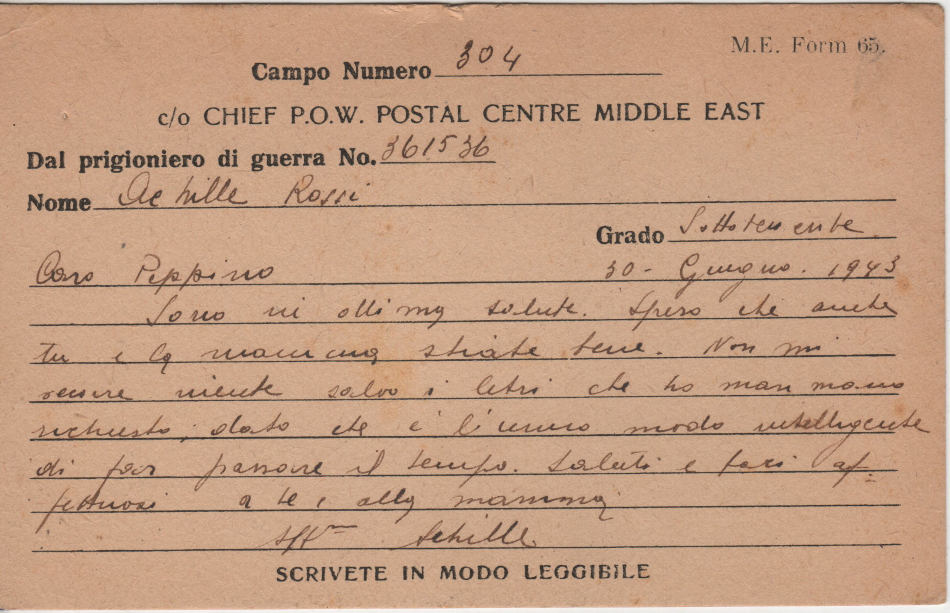 M.E. Form 65.
Campo Numero 304
c/o CHIEF P.O.W. POSTAL CENTRE MIDDLE EAST
Dal prigioniero di guerra No. 361536
Nome Achille Rossi
Grado Sottotenente
Caro Peppino 30 - Giugno. 1943
Sono in ottima salute. Spero che anche
tu e la mamma stiate bene. Non mi
niente salvo i libri che ho man mano
richiesto, dato che è l'unico modo intelligente
di far passare il tempo. Saluti e baci af-
fettuosi a te e alla mamma
Aff.mo Achille
SCRIVETE IN MODO LEGGIBILE